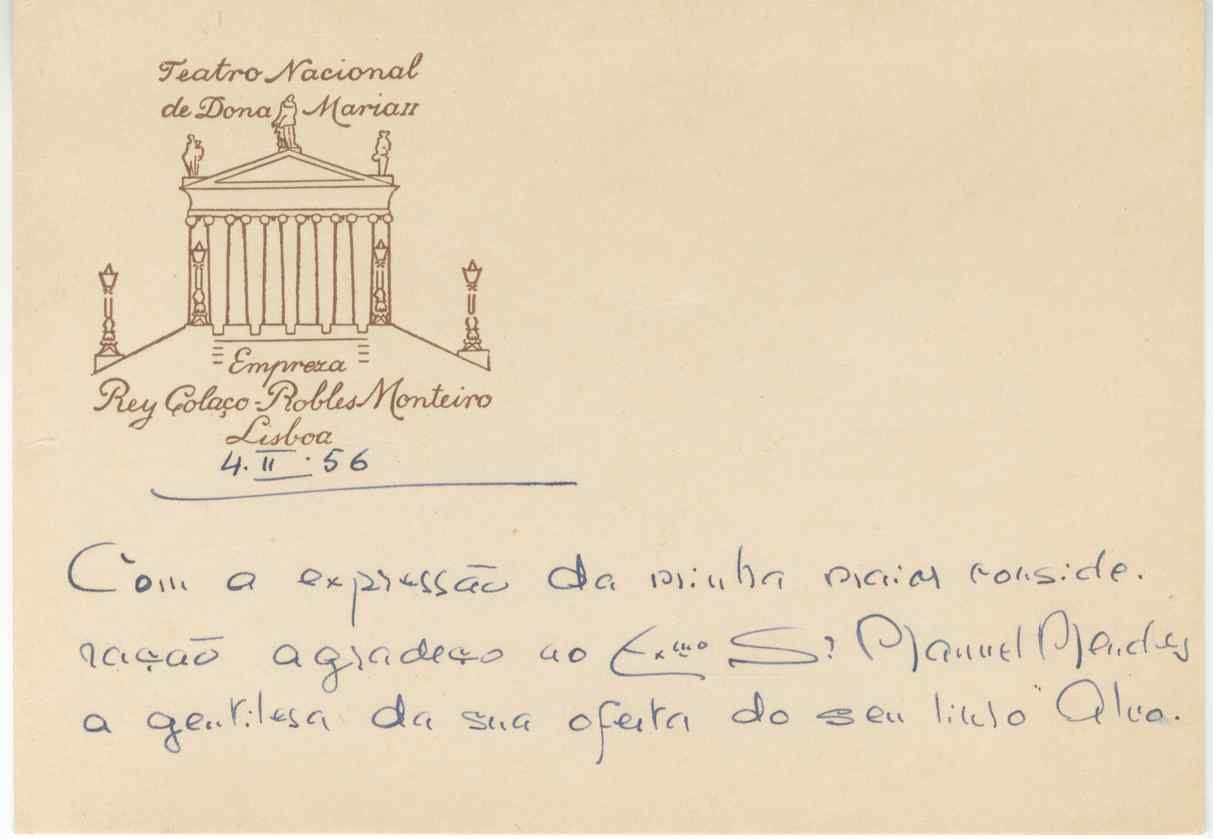 Teatro Nacional
de Dona Maria II
Empreza
Rey Colaço-Robles Monteiro
Lisboa
4. II . 56
Com a expressão da minha maior conside.
ração agradeço ao Exmo Sr. Manuel Mendes
a gentilesa da sua oferta do seu livro "Alvo.